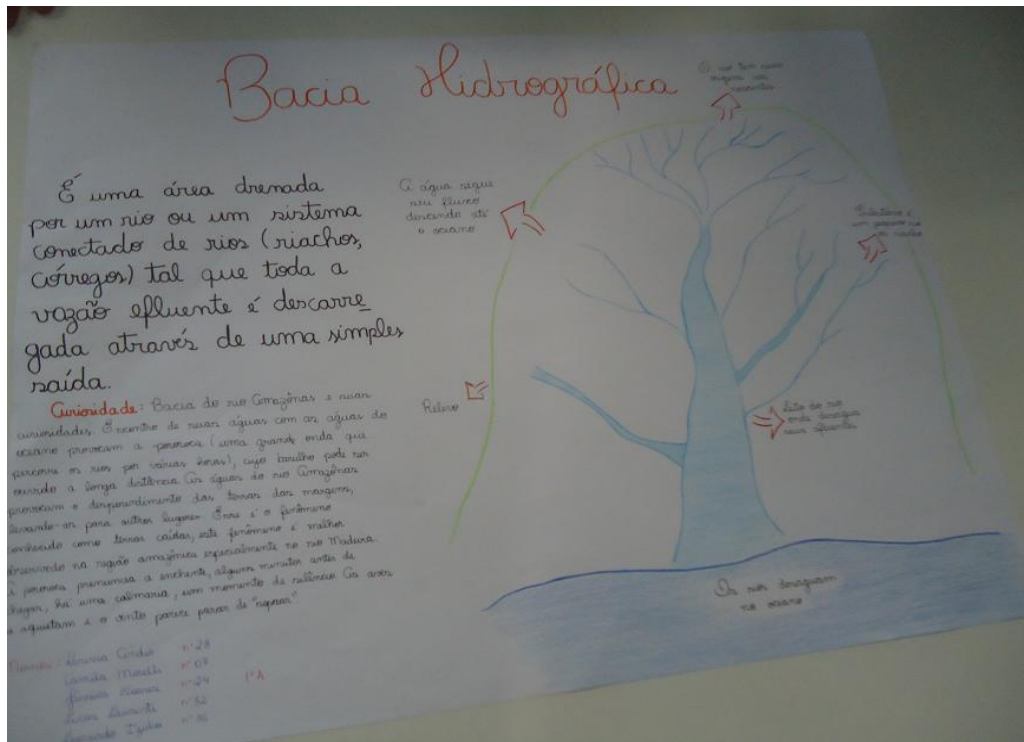 Bacia Hidrográfica
É uma área drenada
por um rio ou um sistema
conectado de rios (riachos,
córregos) tal que toda a
vazão efluente é descarre
gada através de uma simples
saída.
Curiosidade: Bacia do rio Amazônas e suas
curiosidades. Encontro de suas águas com as águas do
oceano provocam a pororoca (uma grande onda que
percorre os rios por várias horas), cujo barulho pode ser
ouvido a longa distância. As águas do rio Amazônas
provocam o desprendimento das terras das margens,
levando-as para outros lugares. Esse é o fenômeno
conhecido como terras caídas, este fenômeno é melhor
observado na região amazônica especialmente no rio Madura.
A pororoca prenuncia a enchente, alguns minutos antes de
chegar, há uma calmaria, um momento de silêncio. As aves
se aquietam e o vento parece parar de "soprar".
nº 28
Camila nº 03
nº 24
1ª A
Lucas nº 32
nº 36
O rio tem sua
origem nas
nascentes
A água segue
seu fluxo
descendo até
o oceano
Tributário é
um pequeno rio
Relevo
Leito do rio
onde desagua
seus afluentes
Os rios desaguam
no oceano